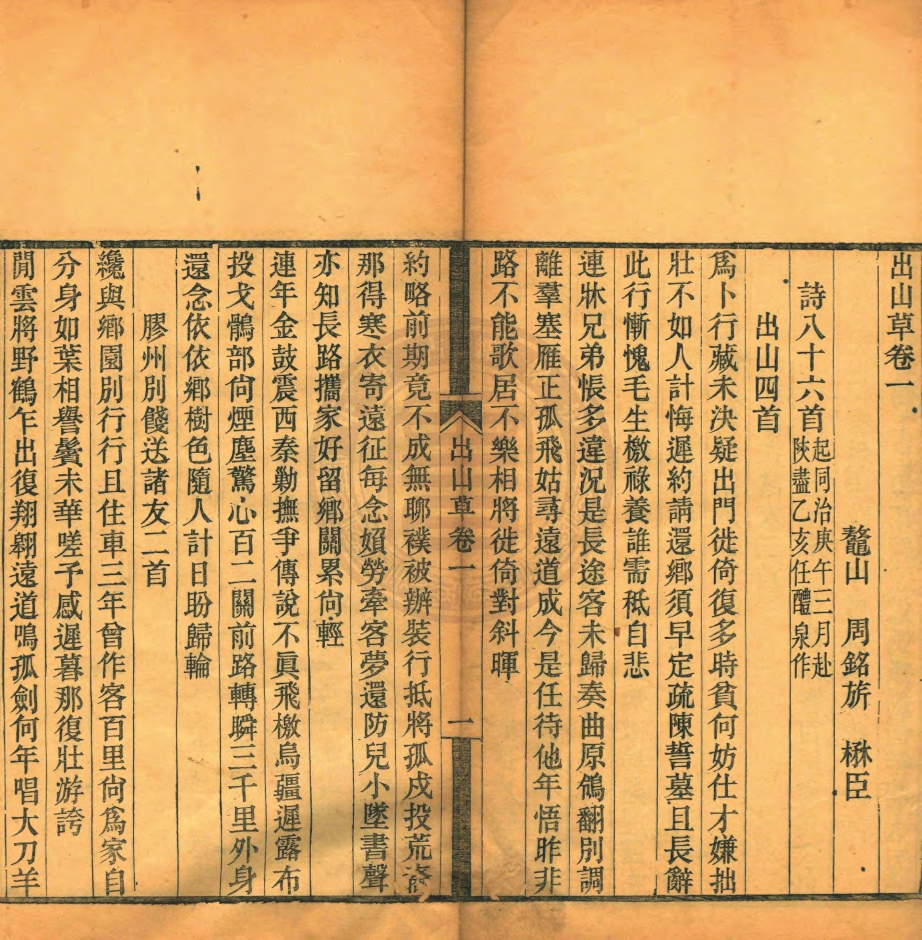 出山草卷一
鼇山 周銘旂 楙臣
詩八十六首起同治庚午三月赴
陝盡乙亥任醴泉作
出山四首
爲卜行藏未決疑出門徙倚復多時貧何妨仕才嫌拙
壯不如人計悔遲約請還鄉須早定疏陳誓墓且長辭
此行慚愧毛生檄祿養誰需秪自悲
連牀兄弟悵多違況是長途客未歸奏曲原鴒翻別調
離羣塞雁正孤飛姑尋遠道成今是任待他年悟昨非
路不能歌居不樂相將徙倚對斜暉
出山草卷一
一
約略前期竟不成無聊襆被辦裝行抵將孤戍投荒
那得寒衣寄遠征每念嬪勞牽客夢還防兒小墜書聲
亦知長路攜家好留鄉關累尙輕
連年金鼓震西秦勦撫爭傳說不眞飛檄烏疆遲露布
投戈鶻部尙煙塵驚心百二關前路轉瞬三千里外身
還念依依鄉樹色隨人計日盼歸輪
膠州別餞送諸友二首
纔與鄉園別行行且住車三年曾作客百里尙爲家自
分身如葉相譽鬢未華嗟予感遲暮那復壯游誇
閒雲將野鶴乍出復翔翱遠道鳴孤劍何年唱大刀羊